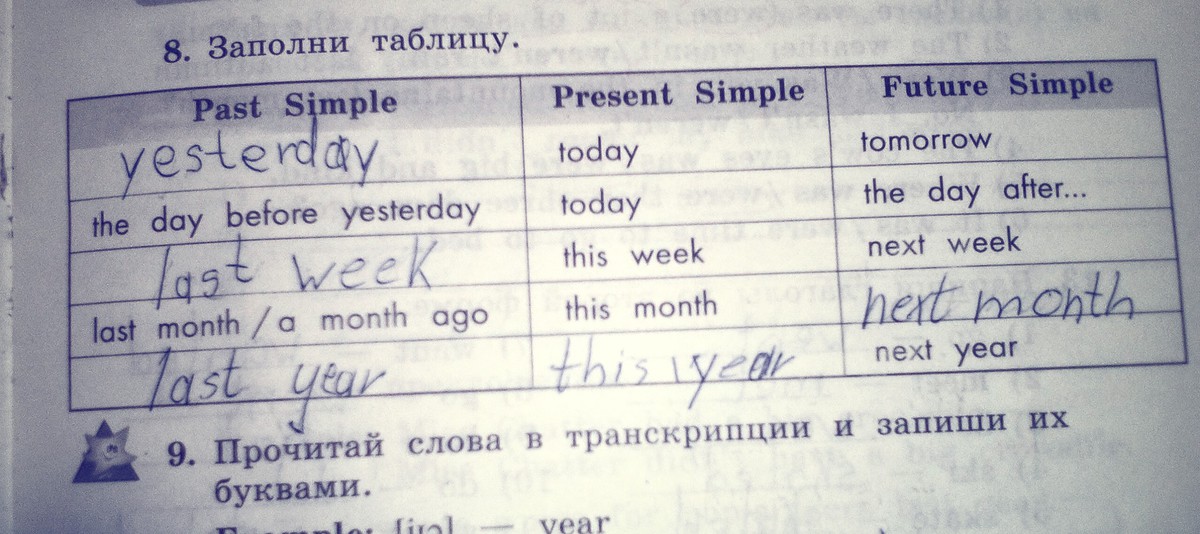 8. Заполни таблицу.
Past Simple Present Simple Future Simple
yesterday today tomorrow
the day before yesterday today the day after...
last week this week next week
last month / a month ago this month next month
last year this year next year
9. Прочитай слова в транскрипции и запиши их
буквами.
Example: — year